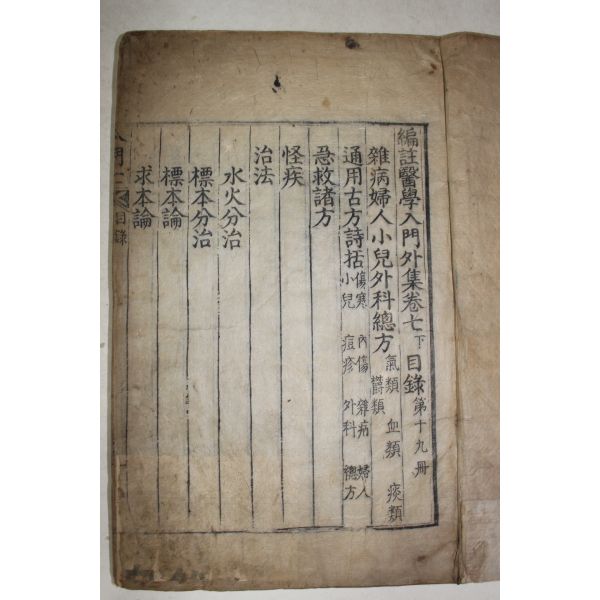 編註醫學入門外集卷七下目錄 第十九冊
雜病婦人小兒外科總方 氣類 血類 痰類 鬱類
通用古方詩括 傷寒 內傷 雜病 婦人 小兒 痘疹 外科 總方
急救諸方
怪疾
治法
水火分治
標本分治
標本論
求本論
入門 目錄